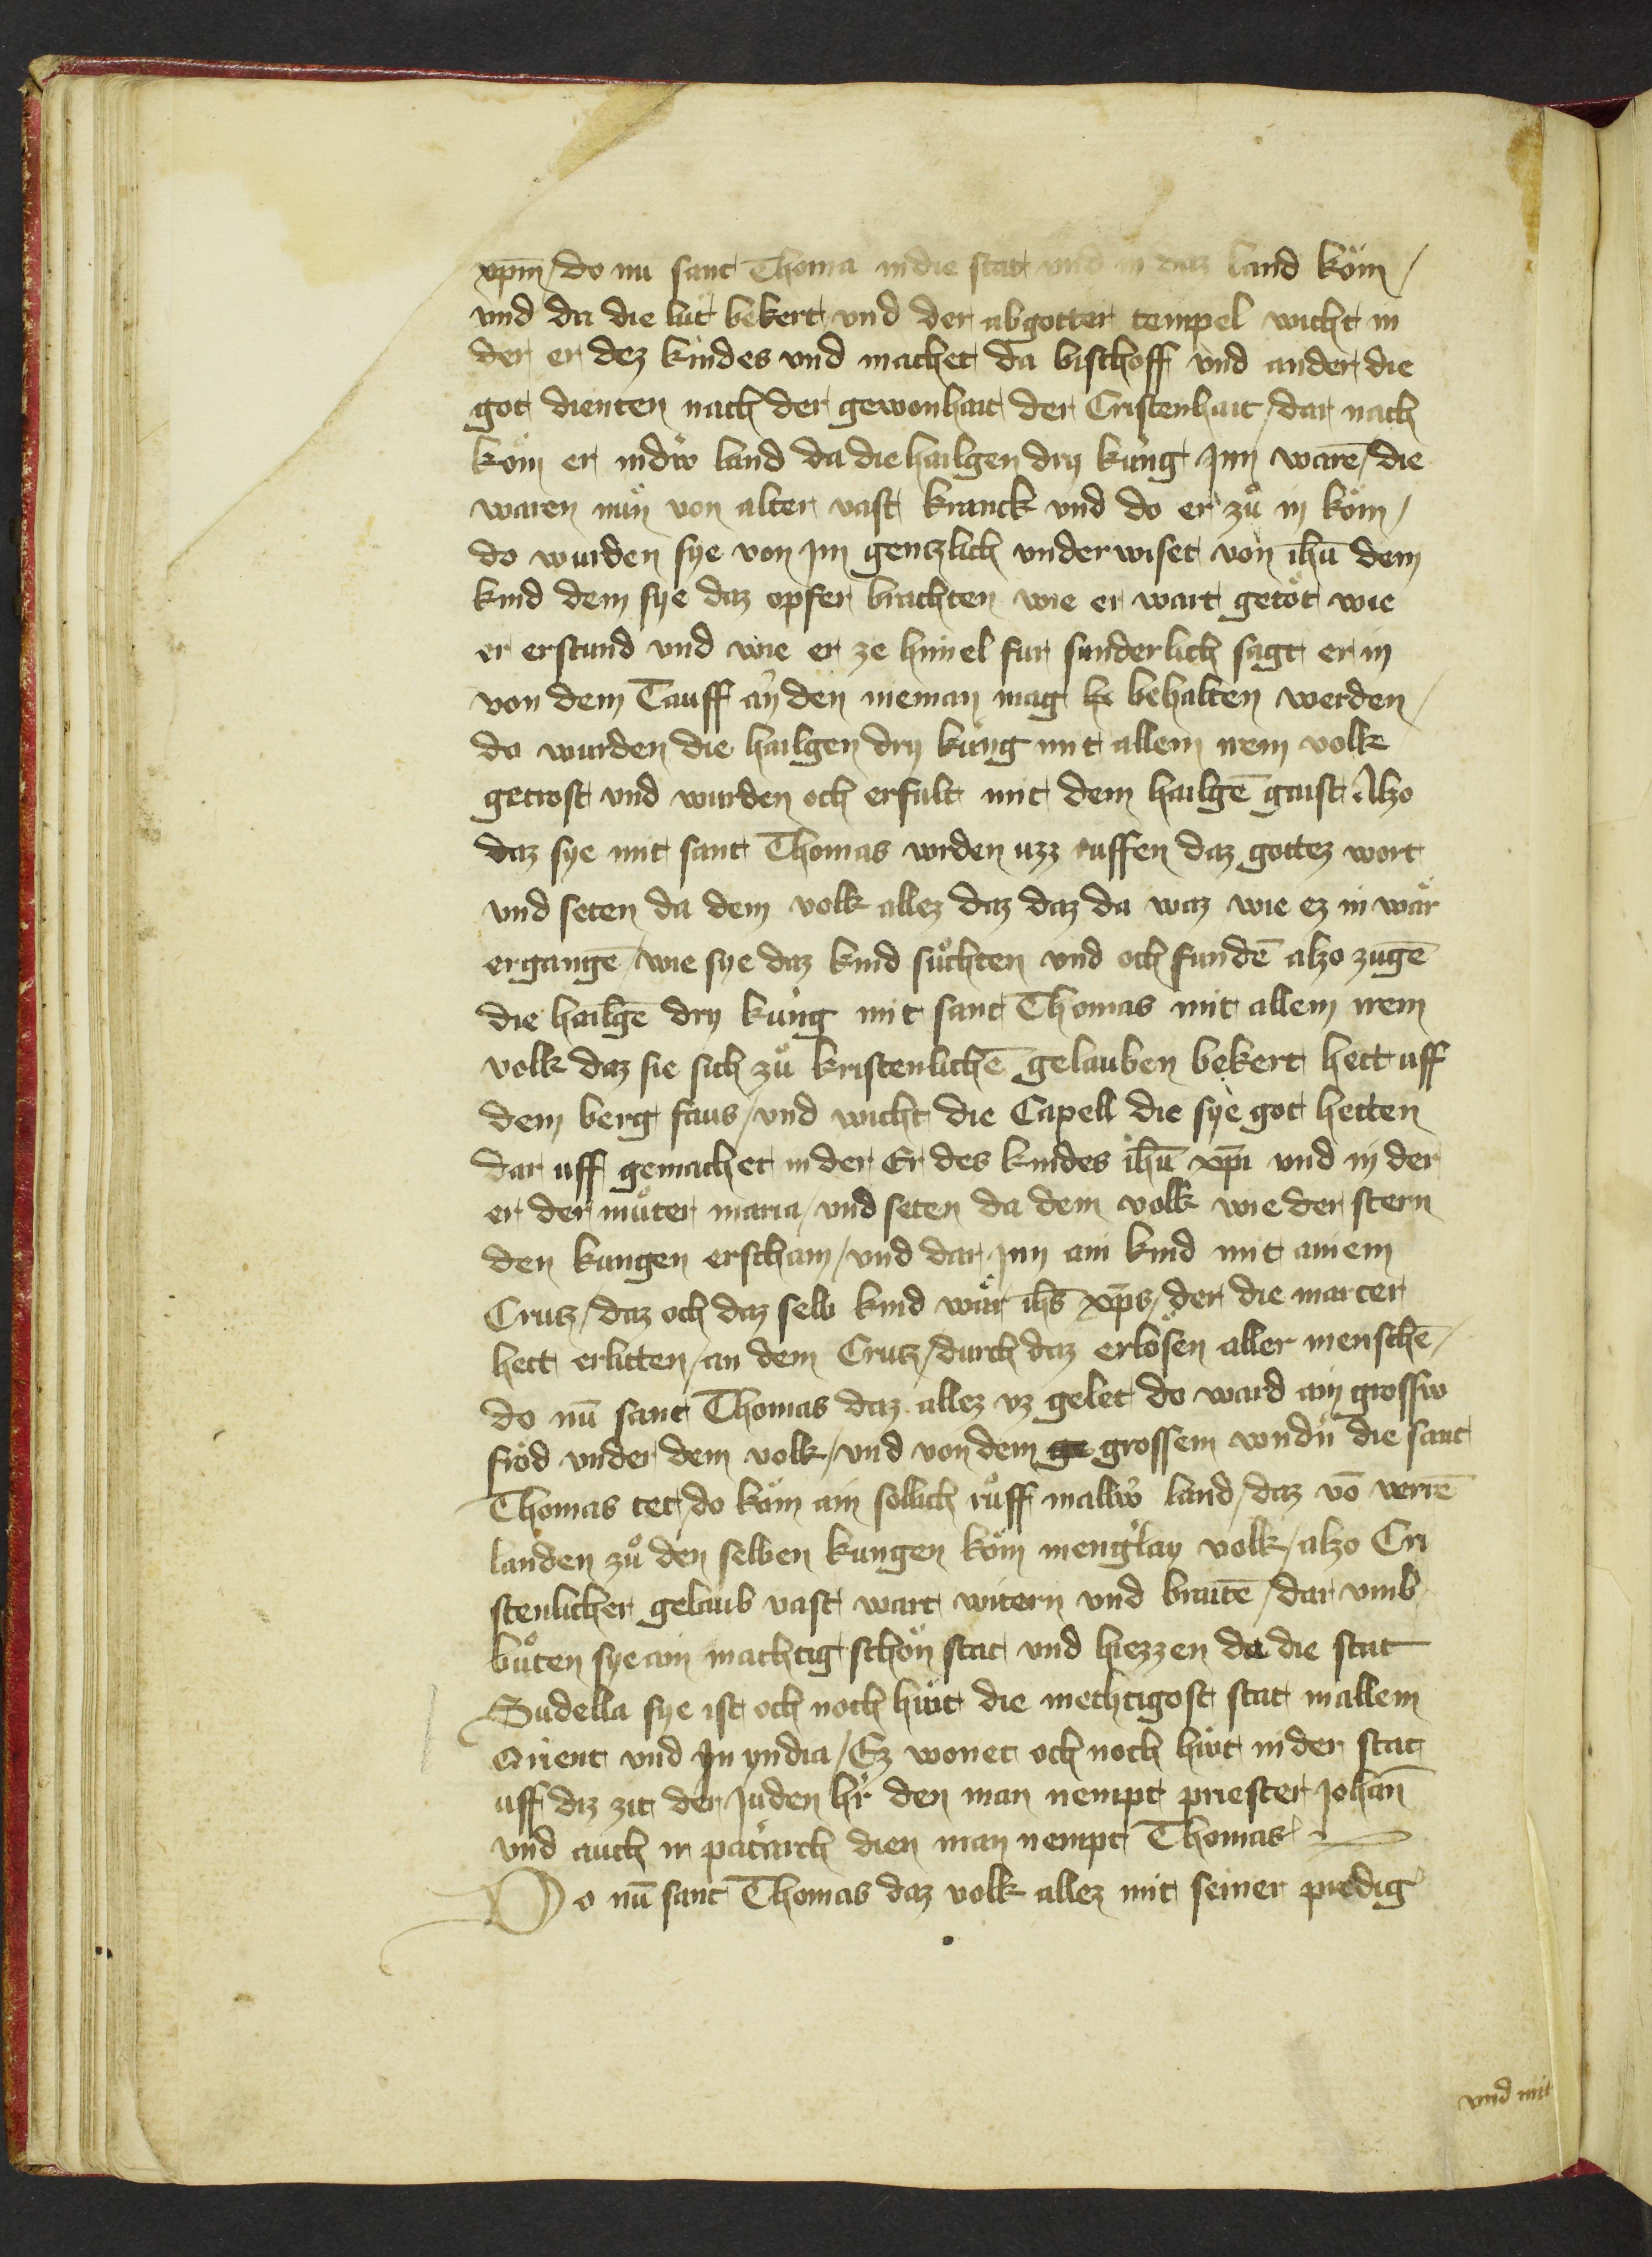 xp̄m / do nu sant Thoma in die stat vnd in daz land kom /
vnd da die lüt bekert vnd der abgotter tempel wicht in
der er dez kindes vnd machet da bischoff vnd ander die
got dienten nach der gewonhait der Cristenhait / dar nach
kom er in diw land da die hailgen dry küng Jnn warē / die
waren nun von alter vast kranck vnd do er zů in kom /
do wurden sye von Jm gentzlich vnderwiset von ihū dem
kind dem sye daz opfer brachten wie er wart getöt wie
er erstund vnd wie er ze himel fur sunderlich sagt er in
von dem Tauff an den nieman mag behalten werden /
do wurden die hailgen dry küng mit allem irem volk
getrost vnd wurden och erfult mit dem hailgē gaist Alzo
daz sye mit sant Thomas wrden uzz ruffen daz gottez wort
vnd seten da dem volk allez daz daz da waz wie ez in wär
ergangē / wie sye daz kind sůchten vnd och fundē alzo zugē
die hailgē dry küng mit sant Thomas mit allem irem
volk daz sie sich zů kristenlichē gelauben bekert hett uff
dem berg faus / vnd wicht die Capell die sye got hetten
dar uff gemachet in der Er des kindes ihū xp̄i vnd in der
er der můter maria / vnd seten da dem volk wie der stern
den kungen erscham / vnd dar Jnn ain kind mit ainem
Crutz / daz och daz selb kind wär ihs̄ xp̄s / der die marter
hett erlitten / an dem Crutz / durch daz erlösen aller menschē /
do nū sant Thomas daz allez vz gelet do ward ain grossiv
fröd vnder dem volk / vnd von dem ge grossem wndn̄ die sant
Thomas tet / do kom ain sollich růff in alliv land / daz vō verrē
landen zů den selben kungen kom menglay volk / alzo Cri
stenlicher gelaub vast wart witern vnd braitē / dar vmb
bůten sye ain machtig schön stat vnd hiezzen da die stat
Sudella sye ist och noch hiut die mechtigost stat in allem
Orient vnd Jn yndia / Ez wonet och noch hiut in der stat
uff diz zit der Juden hr̄ den man nempt priester Johan̄
vnd auch ir patarch dien man nempt Thomas
Do nū sant Thomas daz volk allez mit seiner predig
vnd mit